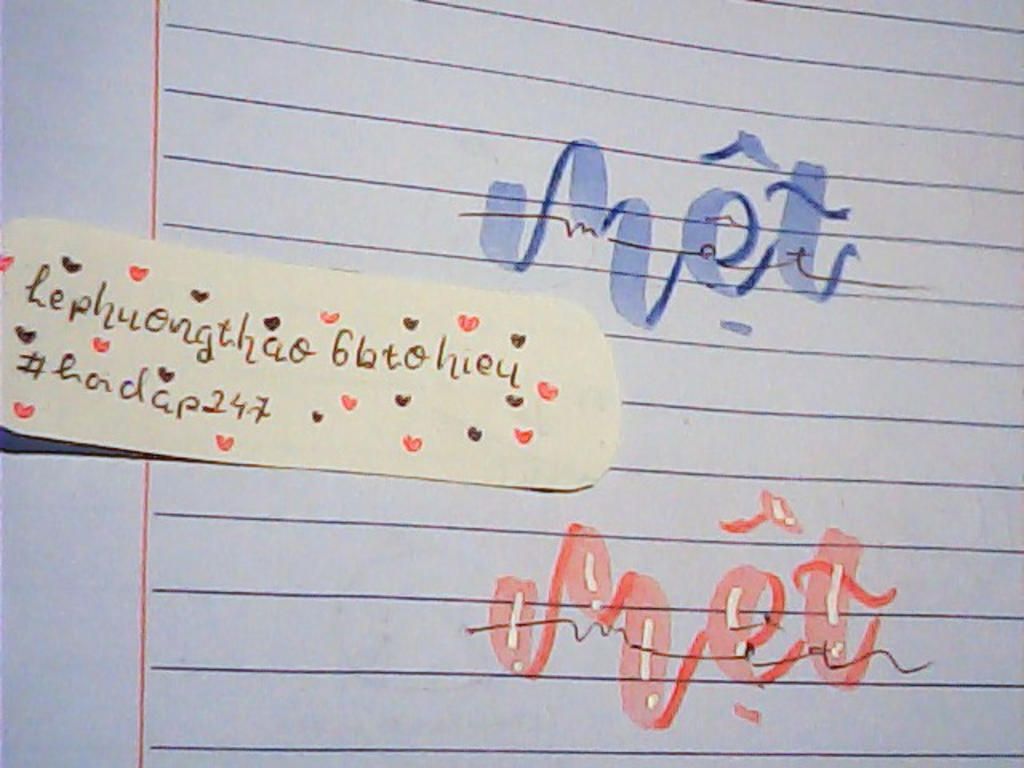 mệt
lephuongthảo 6btohieu
#hoidáp247
mệt